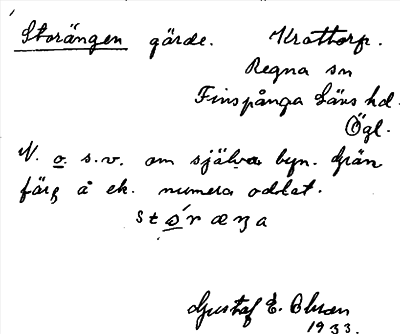 Storängen gärde. Krattorp.
Regna sn
Finspånga Läns hd.
Ögl.
N. o. s.v. om själva byn. Grän
färg å ek. numera odlat.
stǿ̱ræŋa
Gustaf E. Olsson
1933.